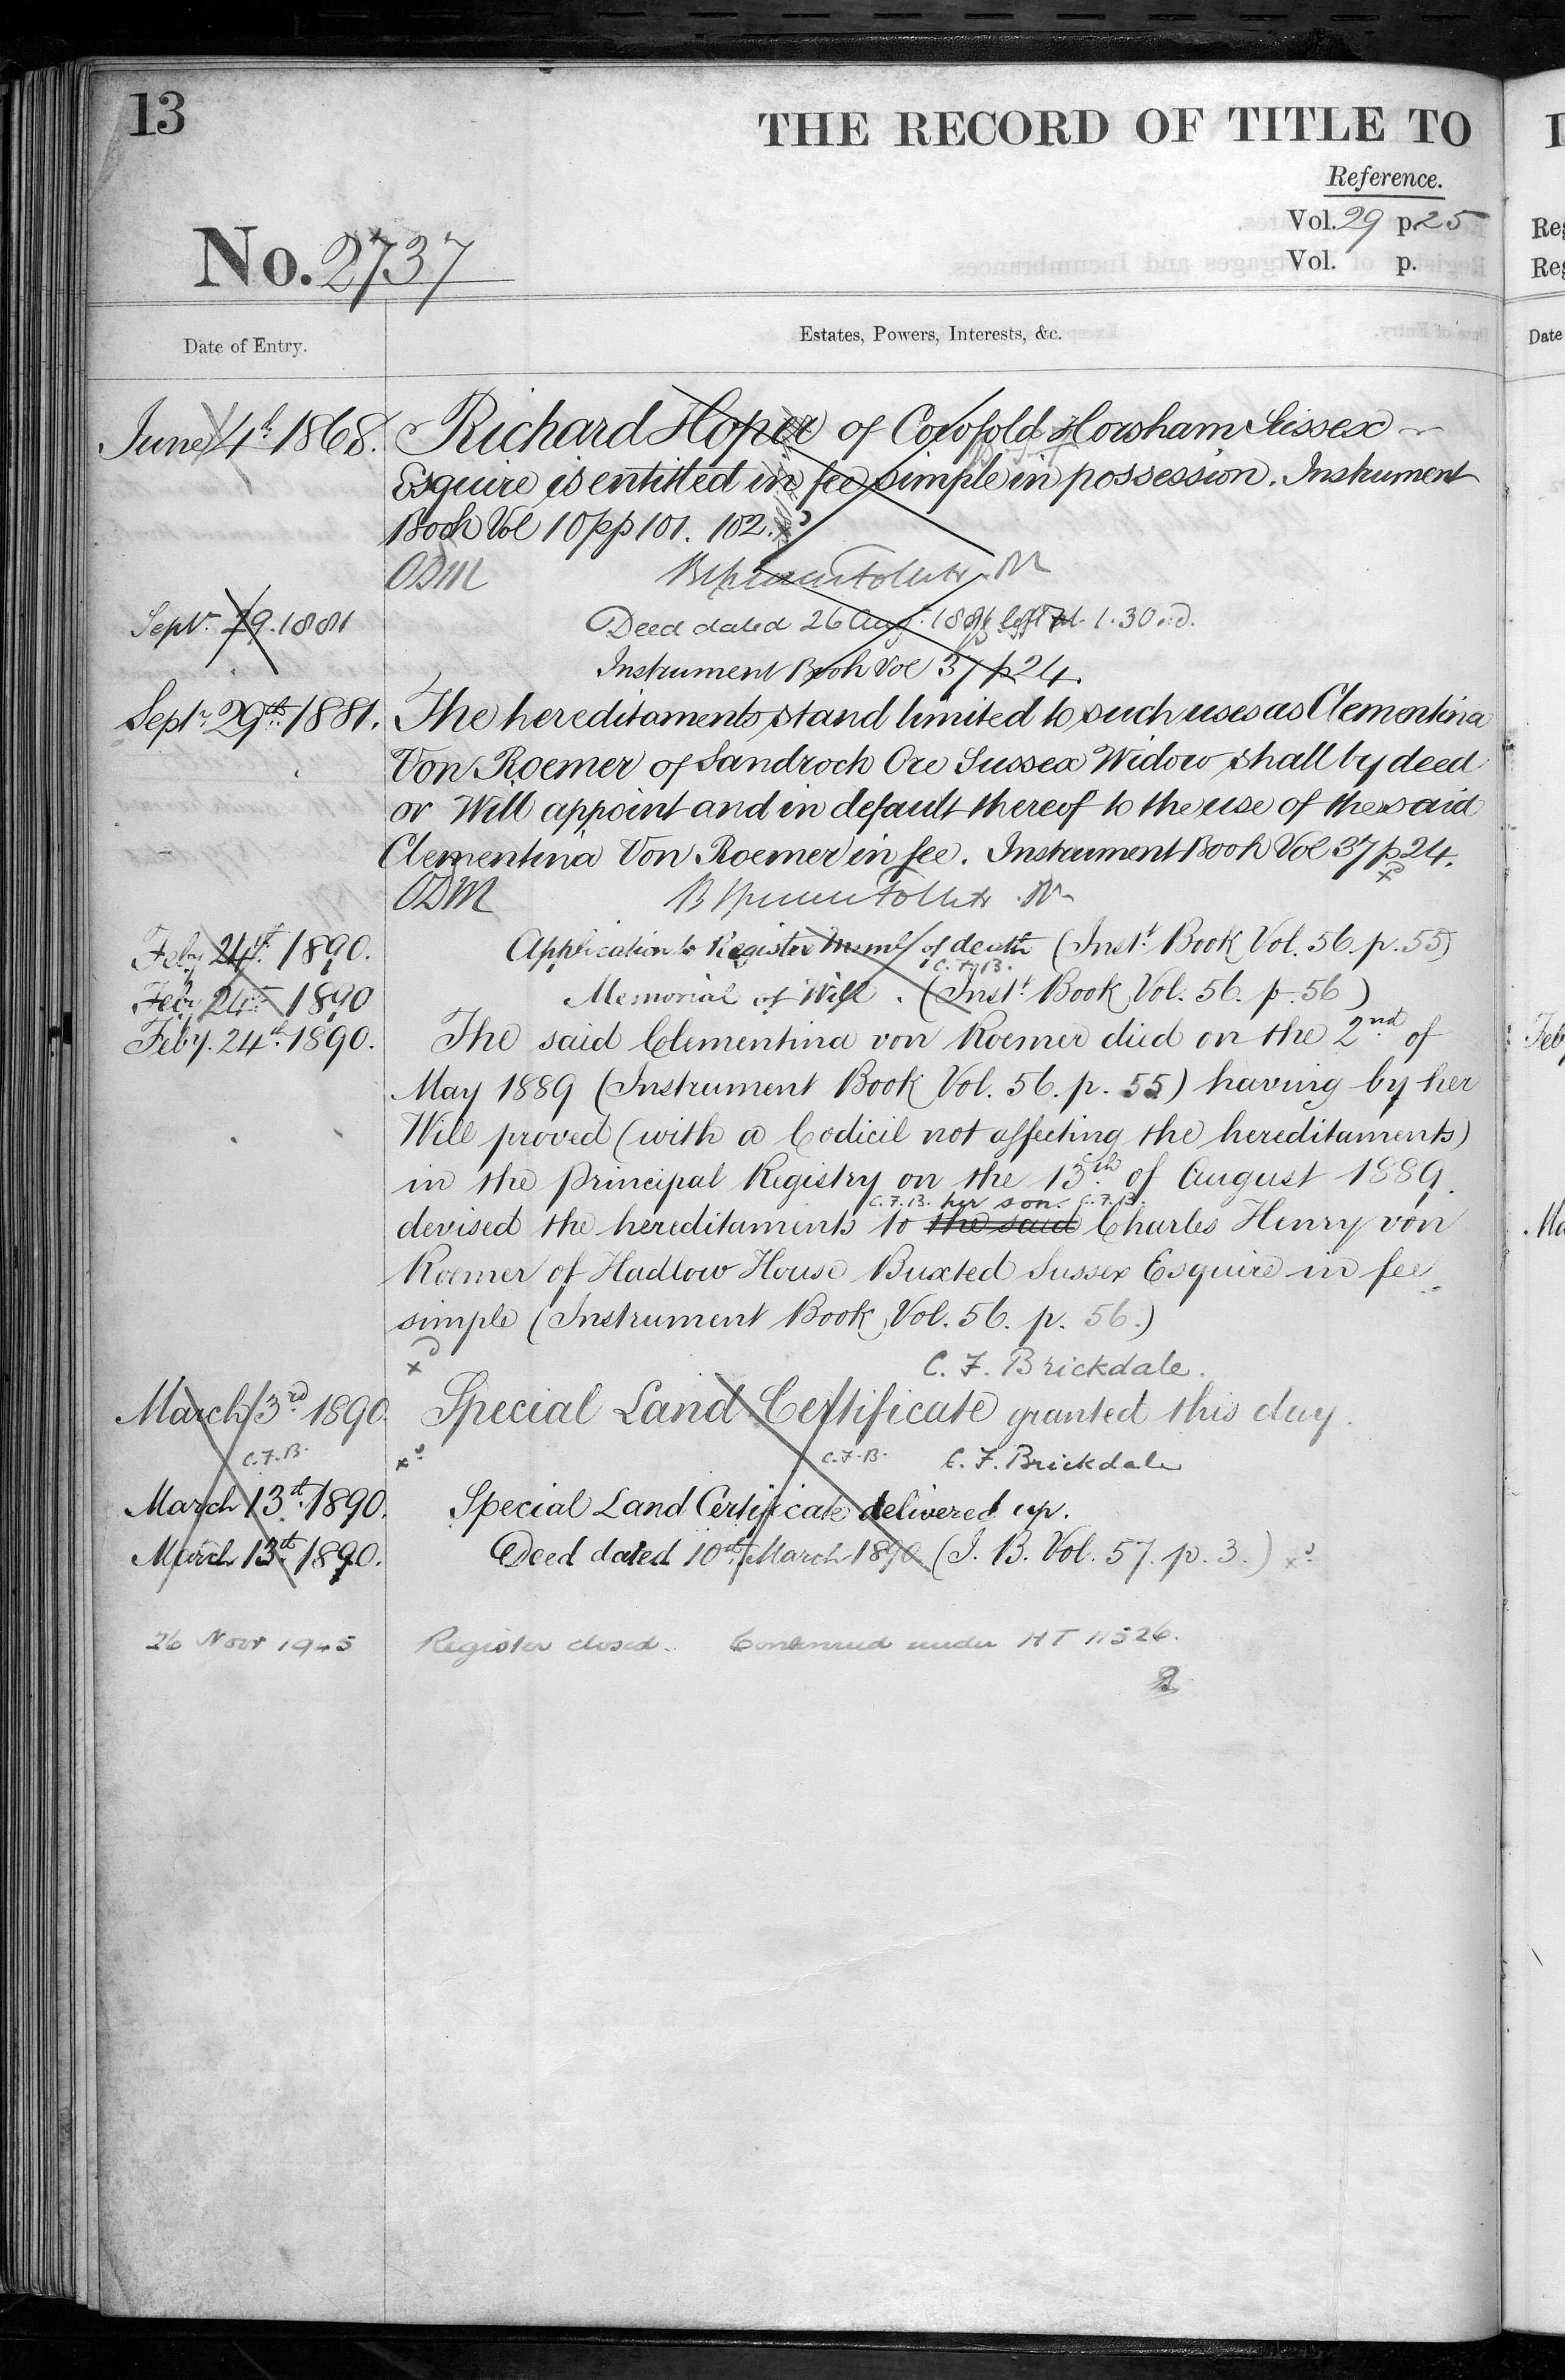 13
THE RECORD OF TITLE TO
Reference.
Vol. 29 p. 25
Vol. p.
No. 2737
Date of Entry.
Estates, Powers, Interests, &c.
June 4th 1868. Richard Hoper of Cowfold Horsham Sussex
Esquire is entitled in fee simple in possession. Instrument
Book Vol 10 pp 101. 102.
ODM
Septr. 29. 1881 Deed dated 26 Aug. 1881 left at 1.30
Instrument Book Vol 37 p 24.
Septr. 29th 1881. The hereditaments stand limited to such uses as Clementina
Von Roemer of Sandrock Ore Sussex Widow shall by deed
or Will appoint and in default thereof to the use of the said
Clementina Von Roemer in fee. Instrument Book Vol 37 p 24.
ODM
Feby 24th 1890. Application to Register Meml of death (Inst. Book Vol. 56. p. 55)
C.F.B.
Feby 24th 1890 Memorial of Will. (Inst. Book Vol. 56. p. 56)
Feby. 24th 1890. The said Clementina von Roemer died on the 2nd of
May 1889 (Instrument Book Vol. 56. p. 55) having by her
Will proved (with a Codicil not affecting the hereditaments)
in the Principal Registry on the 13th of August 1889.
C.F.B. her son. C.F.B.
devised the hereditaments to the said Charles Henry von
Roemer of Hadlow House Buxted Sussex Esquire in fee
simple (Instrument Book Vol. 56. p. 56.)
C. F. Brickdale.
March 3rd 1890. Special Land Certificate granted this day.
C.F.B. C.F.B. C. F. Brickdale
March 13th 1890. Special Land Certificate delivered up.
March 13th 1890. Deed dated 10th March 1890 (I. B. Vol. 57. p. 3.)
26 Novr 1945 Register closed. Continued under HT 11526.